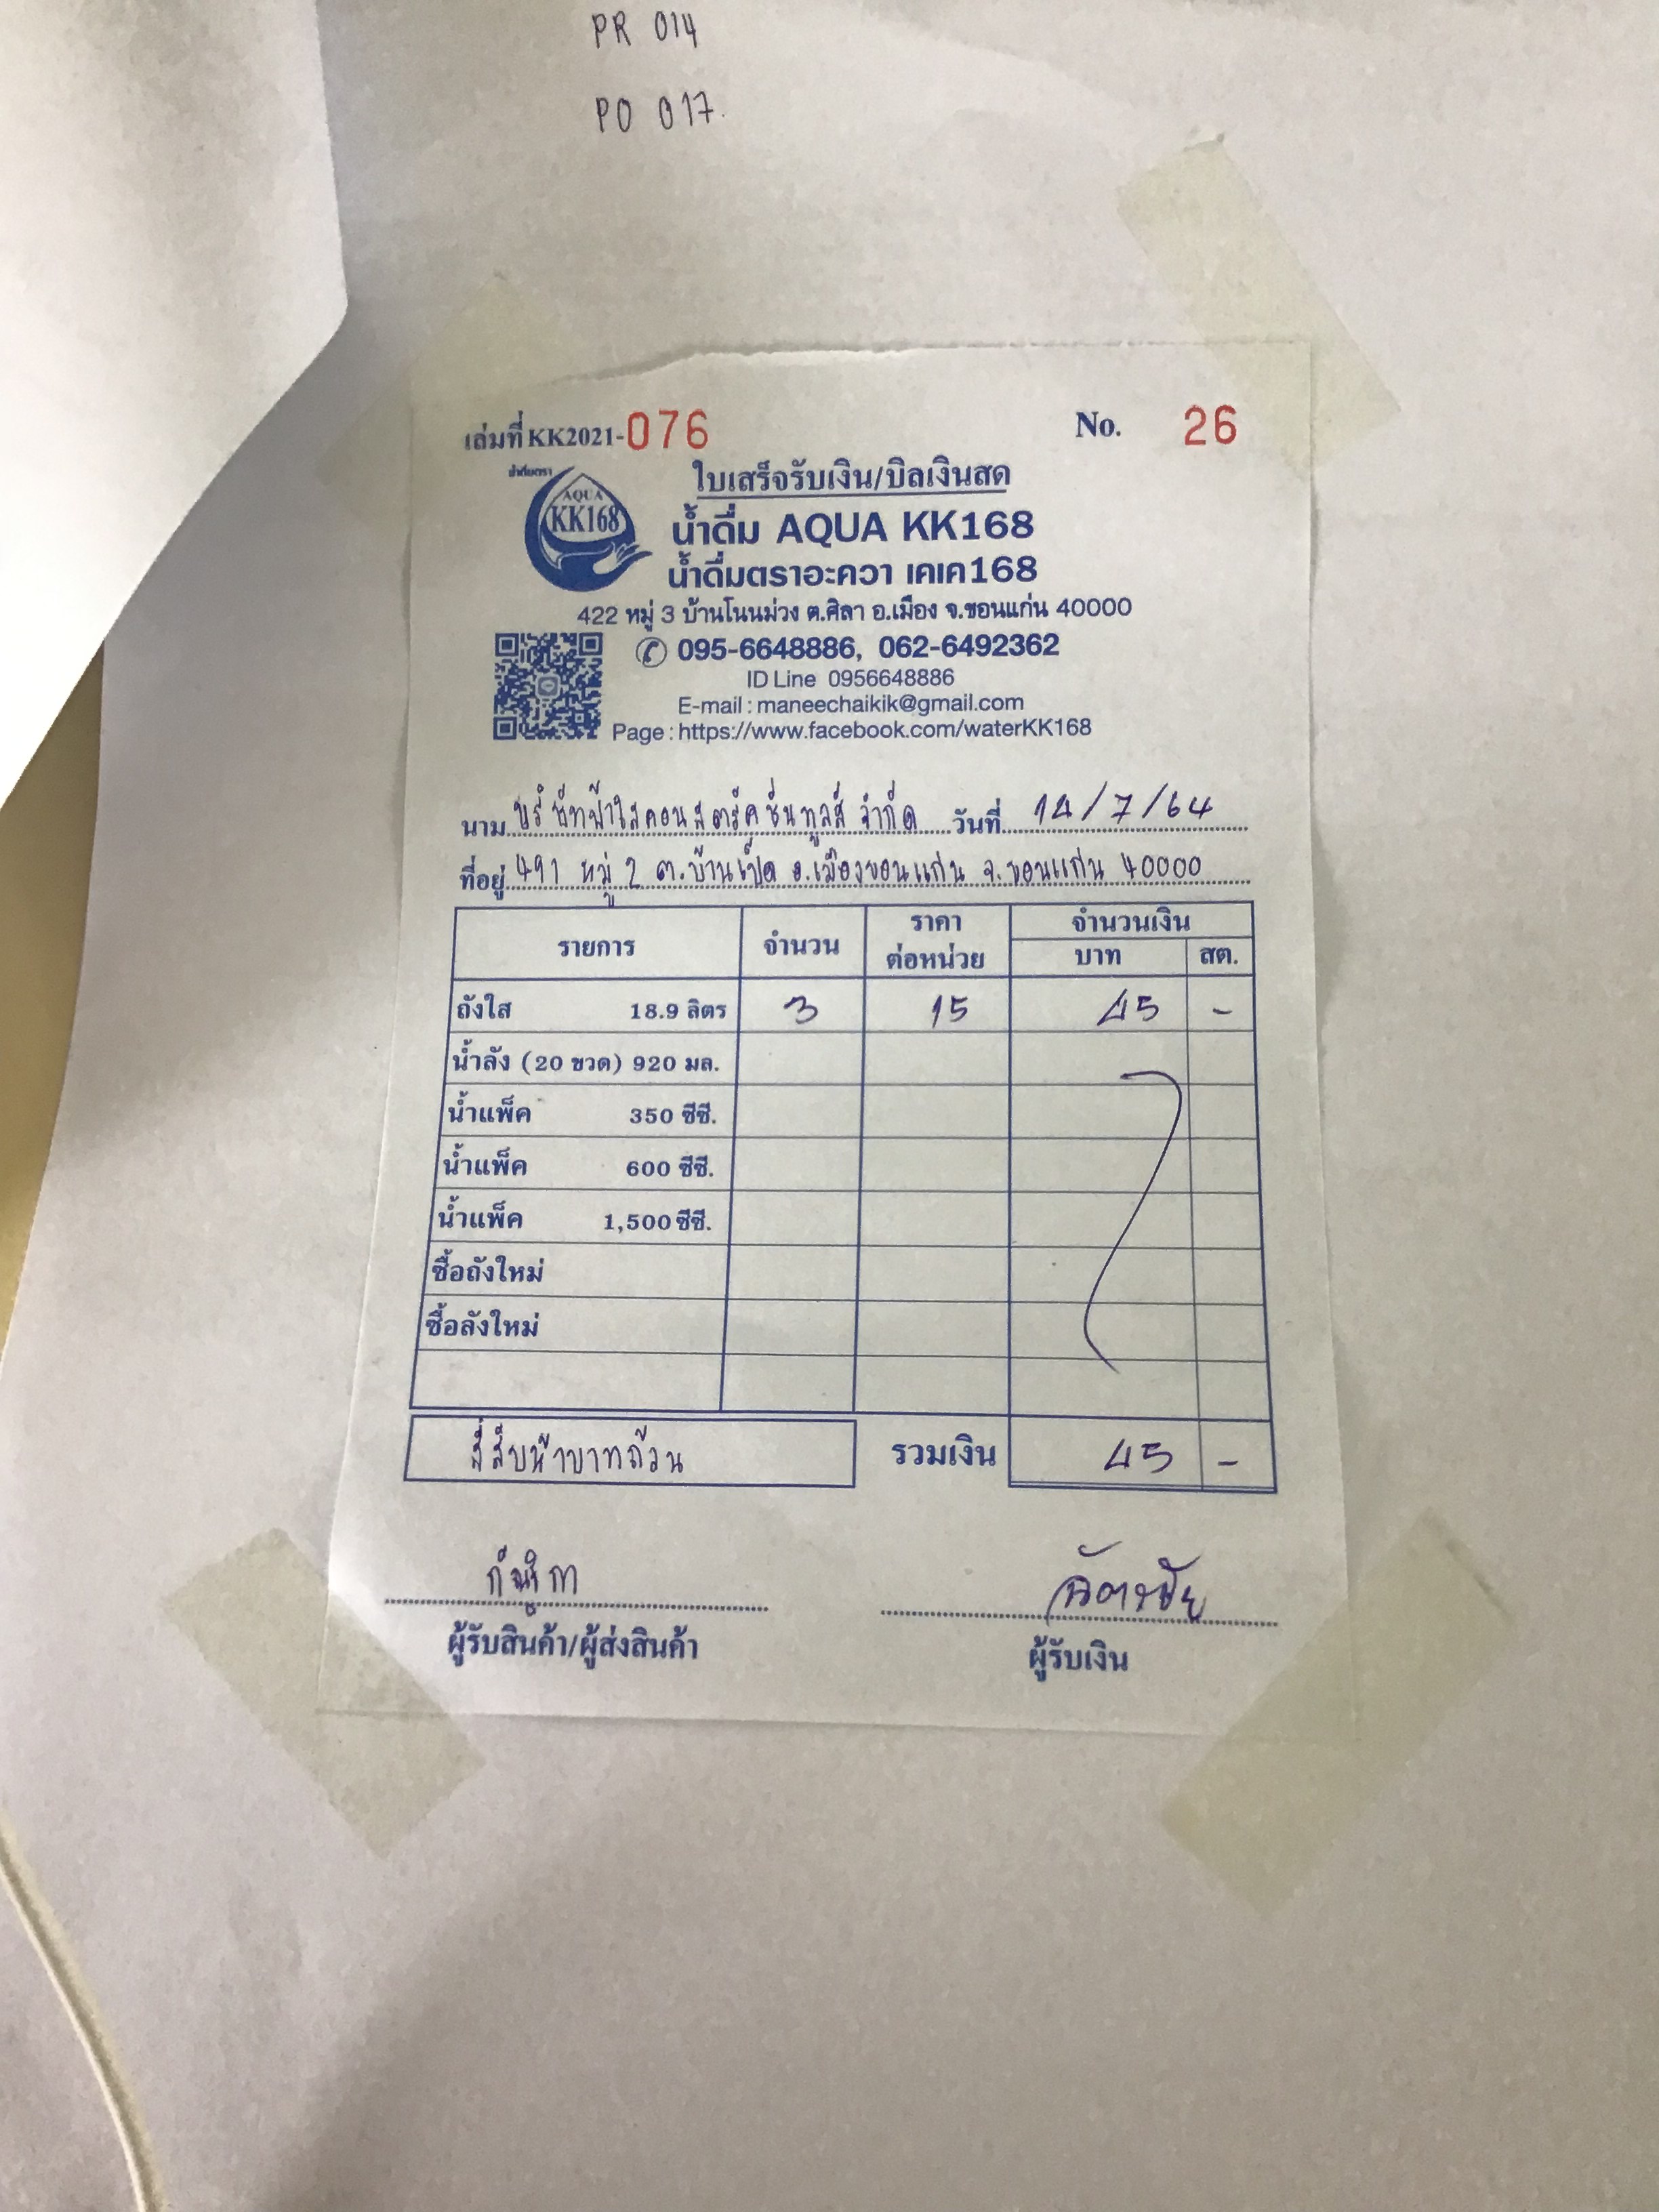 PR 014
PO 017
เล่มที่ KK2021-076 No. 26
ใบเสร็จรับเงิน/บิลเงินสด
น้ำดื่ม AQUA KK168
น้ำดื่มตราอะควา เคเค168
AQUA
KK168
422 หมู่ 3 บ้านโนนม่วง ต.ศิลา อ.เมือง จ.ขอนแก่น 40000
095-6648886, 062-6492362
ID Line 0956648886
E-mail : maneechaikik@gmail.com
Page : https://www.facebook.com/waterKK168
นาม บริษัทฟ้าใสคอนสตรัคชั่นทูลส์ จำกัด วันที่ 14/7/64
ที่อยู่ 491 หมู่ 2 ต.บ้านเป็ด อ.เมืองขอนแก่น จ.ขอนแก่น 40000
รายการ จำนวน ราคาต่อหน่วย จำนวนเงิน
บาท สต.
ถังใส 18.9 ลิตร 3 15 45 -
น้ำลัง (20 ขวด) 920 มล.
น้ำแพ็ค 350 ซีซี.
น้ำแพ็ค 600 ซีซี.
น้ำแพ็ค 1,500 ซีซี.
ซื้อถังใหม่
ซื้อลังใหม่
สี่สิบห้าบาทถ้วน รวมเงิน 45 -
ผู้รับสินค้า/ผู้ส่งสินค้า ผู้รับเงิน